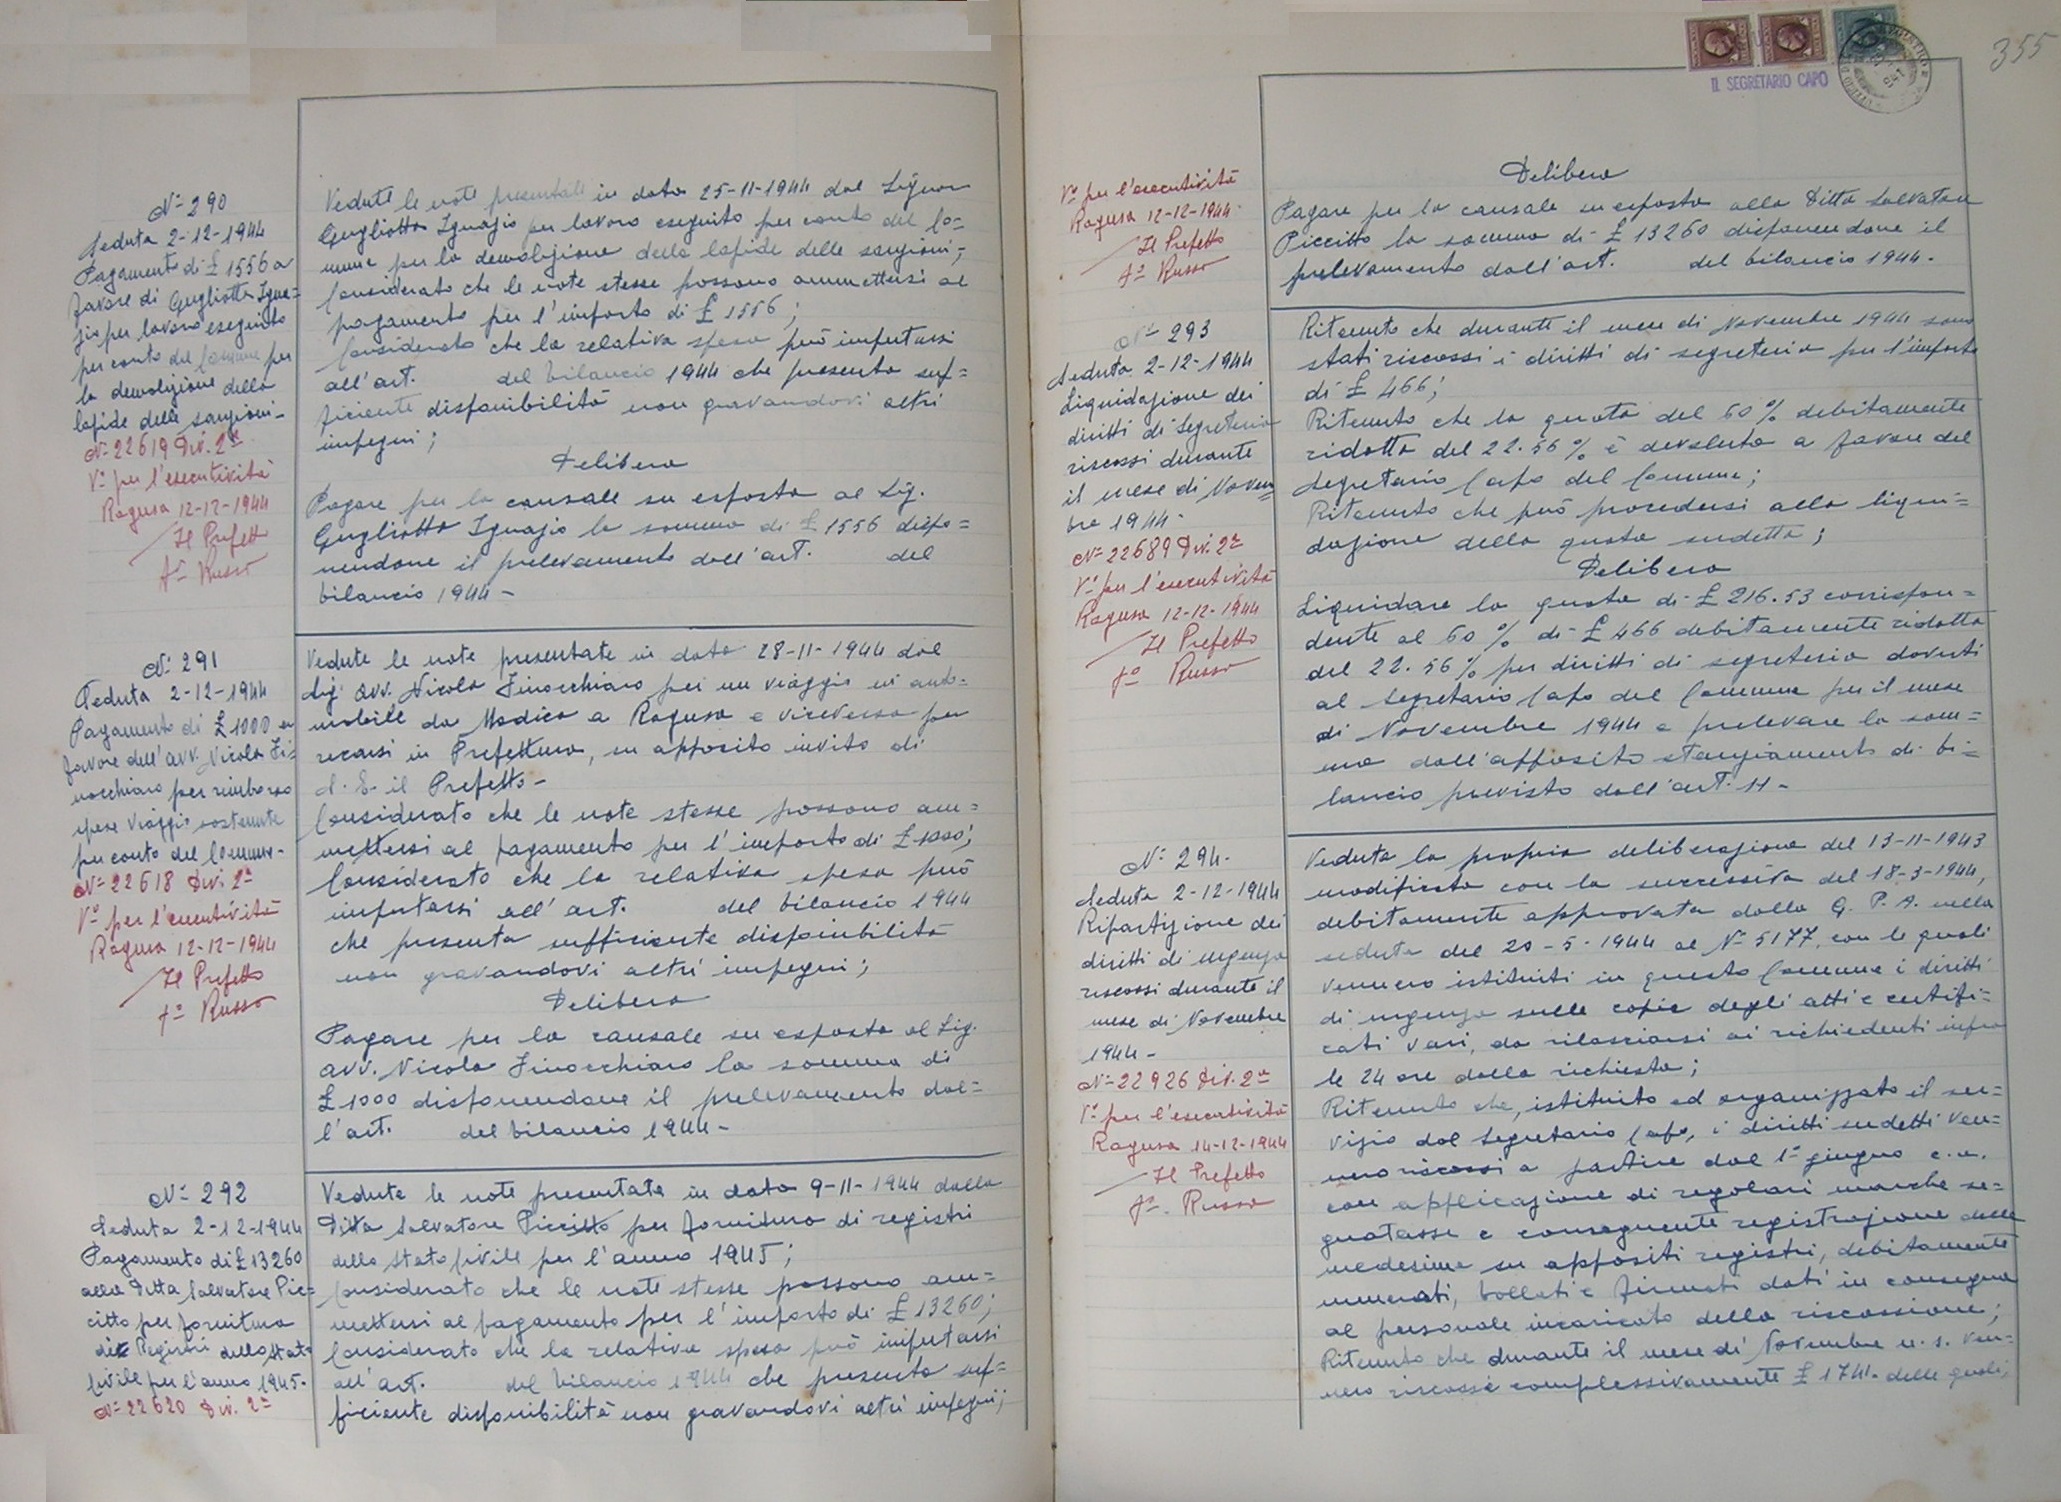 N° 290
Seduta 2-12-1944
Pagamento di £ 1556 a
favore di Gugliotta Igna=
zio per lavoro eseguito
per conto del Comune per
la demolizione della
lapide delle sanzioni-
N° 22619 Div. 2ª
V° per l'esecutività
Ragusa 12-12-1944
Il Prefetto
f° Russo
Vedute le note presentate in data 25-11-1944 dal Signor
Gugliotta Ignazio per lavoro eseguito per conto del Co=
mune per la demolizione della lapide delle sanzioni;
Considerato che le note stesse possono ammettersi al
pagamento per l'importo di £ 1556;
Considerato che la relativa spesa può imputarsi
all'art. del bilancio 1944 che presenta suf=
ficiente disponibilità non gravandovi altri
impegni;
Delibera
Pagare per la causale su esposta al Sig.
Gugliotta Ignazio la somma di £ 1556 dispo=
nendone il prelevamento dall'art. del
bilancio 1944-
N° 291
Seduta 2-12-1944
Pagamento di £ 1000 a
favore dell'avv. Nicola Fi=
nocchiaro per rimborso
spese viaggio sostenute
per conto del Comune-
N° 22618 Div. 2ª
V° per l'esecutività
Ragusa 12-12-1944
Il Prefetto
f° Russo
Vedute le note presentate in data 28-11-1944 dal
Sig. avv. Nicola Finocchiaro per un viaggio in auto=
mobile da Modica a Ragusa e viceversa per
recarsi in Prefettura, su apposito invito di
S. E. il Prefetto-
Considerato che le note stesse possono am=
mettersi al pagamento per l'importo di £ 1000;
Considerato che la relativa spesa può
imputarsi all'art. del bilancio 1944
che presenta sufficiente disponibilità
non gravandovi altri impegni;
Delibera
Pagare per la causale su esposta al Sig.
avv. Nicola Finocchiaro la somma di
£ 1000 disponendone il prelevamento dal=
l'art. del bilancio 1944-
N° 292
Seduta 2-12-1944
Pagamento di £ 13260
alla Ditta Salvatore Pic=
citto per fornitura
dei Registri dello Stato
Civile per l'anno 1945.
N° 22620 Div. 2ª
Vedute le note presentate in data 9-11-1944 dalla
Ditta Salvatore Piccitto per fornitura di registri
dello Stato Civile per l'anno 1945;
Considerato che le note stesse possono am=
mettersi al pagamento per l'importo di £ 13260;
Considerato che la relativa spesa può imputarsi
all'art. del bilancio 1944 che presenta suf=
ficiente disponibilità non gravandovi altri impegni;
355
IL SEGRETARIO CAPO
V° per l'esecutività
Ragusa 12-12-1944
Il Prefetto
f° Russo
Delibera
Pagare per la causale su esposta alla Ditta Salvatore
Piccitto la somma di £ 13260 disponendone il
prelevamento dall'art. del bilancio 1944-
N° 293
Seduta 2-12-1944
Liquidazione dei
diritti di Segreteria
riscossi durante
il mese di Novem=
bre 1944-
N° 22689 Div. 2ª
V° per l'esecutività
Ragusa 12-12-1944
Il Prefetto
f° Russo
Ritenuto che durante il mese di Novembre 1944 sono
stati riscossi i diritti di segreteria per l'importo
di £ 466;
Ritenuto che la quota del 60% debitamente
ridotta del 22.56% è devoluta a favore del
Segretario Capo del Comune;
Ritenuto che può procedersi alla liqui=
dazione della quota sudetta;
Delibera
Liquidare la quota di £ 216.53 corrispon=
dente al 60% di £ 466 debitamente ridotta
del 22.56% per diritti di segreteria dovuti
al Segretario Capo del Comune per il mese
di Novembre 1944 e prelevare la som=
ma dall'apposito stanziamento di bi=
lancio previsto dall'art. 11-
N° 294.
Seduta 2-12-1944
Ripartizione dei
diritti di urgenza
riscossi durante il
mese di Novembre
1944-
N° 22926 Div. 2ª
V° per l'esecutività
Ragusa 14-12-1944
Il Prefetto
f° Russo
Veduta la propria deliberazione del 13-11-1943
modificata con la successiva del 18-3-1944,
debitamente approvata dalla G. P. A. nella
seduta del 20-5-1944 al N° 5177, con le quali
vennero istituiti in questo Comune i diritti
di urgenza sulle copie degli atti e certifi=
cati vari, da rilasciarsi ai richiedenti infra
le 24 ore dalla richiesta;
Ritenuto che, istituito ed organizzato il ser=
vizio dal Segretario Capo, i diritti sudetti ven=
nero riscossi a partire dal 1° giugno c.a.
con applicazione di regolari marche se=
gnatasse e conseguente registrazione delle
medesime su appositi registri, debitamente
numerati, bollati e firmati dati in consegna
al personale incaricato della riscossione;
Ritenuto che durante il mese di Novembre u.s. ven=
nero riscosse complessivamente £ 1741. delle quali;